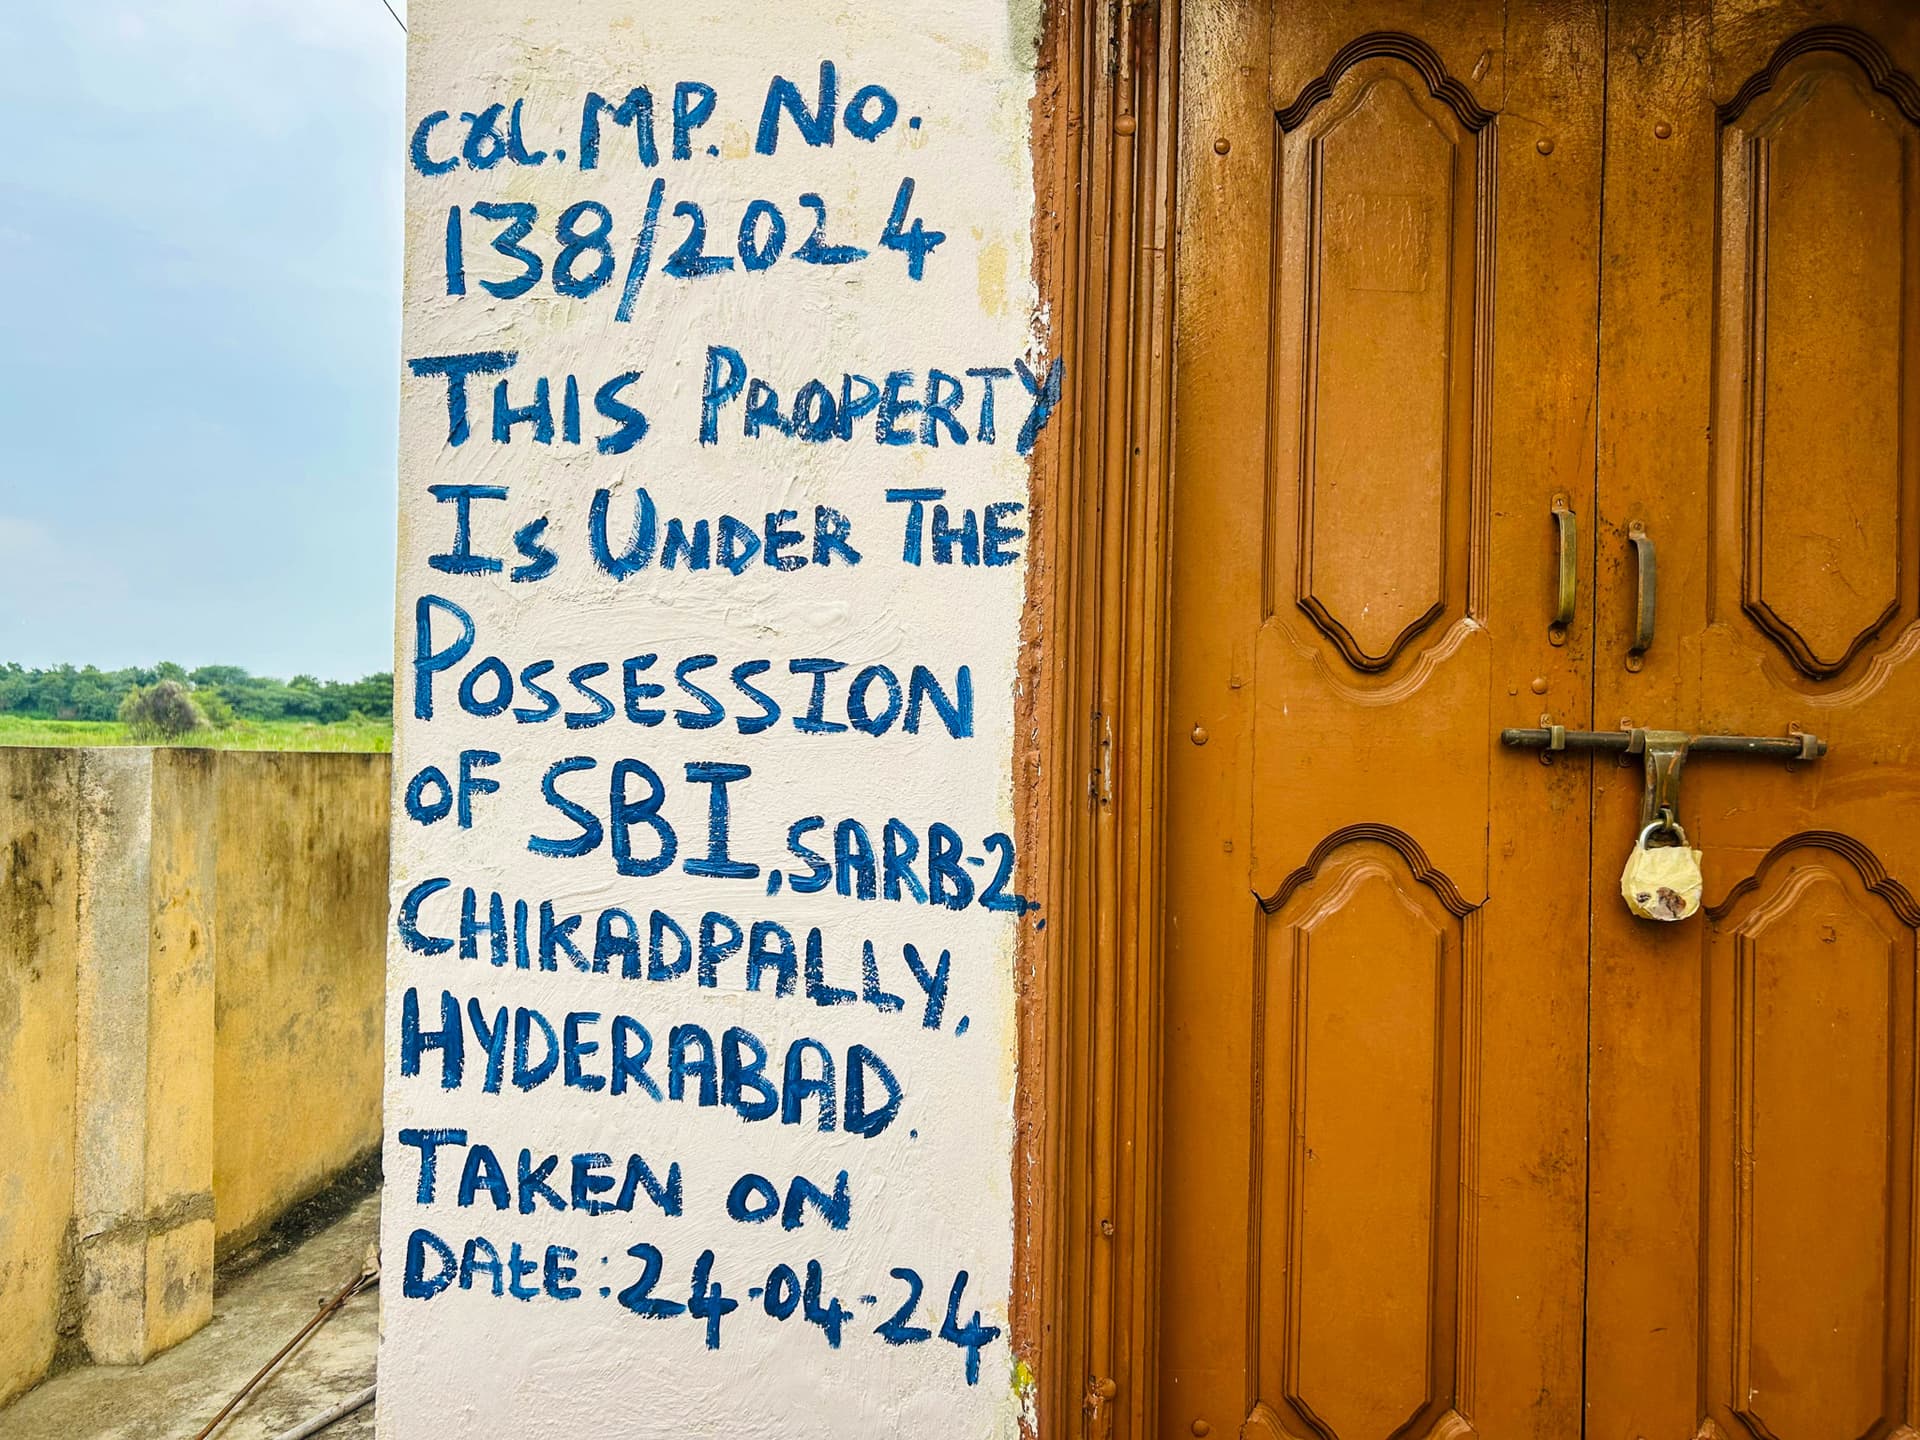 CRL.MP. NO.
138/2024
THIS PROPERTY
IS UNDER THE
POSSESSION
OF SBI, SARB-2.
CHIKADPALLY,
HYDERABAD.
TAKEN ON
DATE:24-04-24